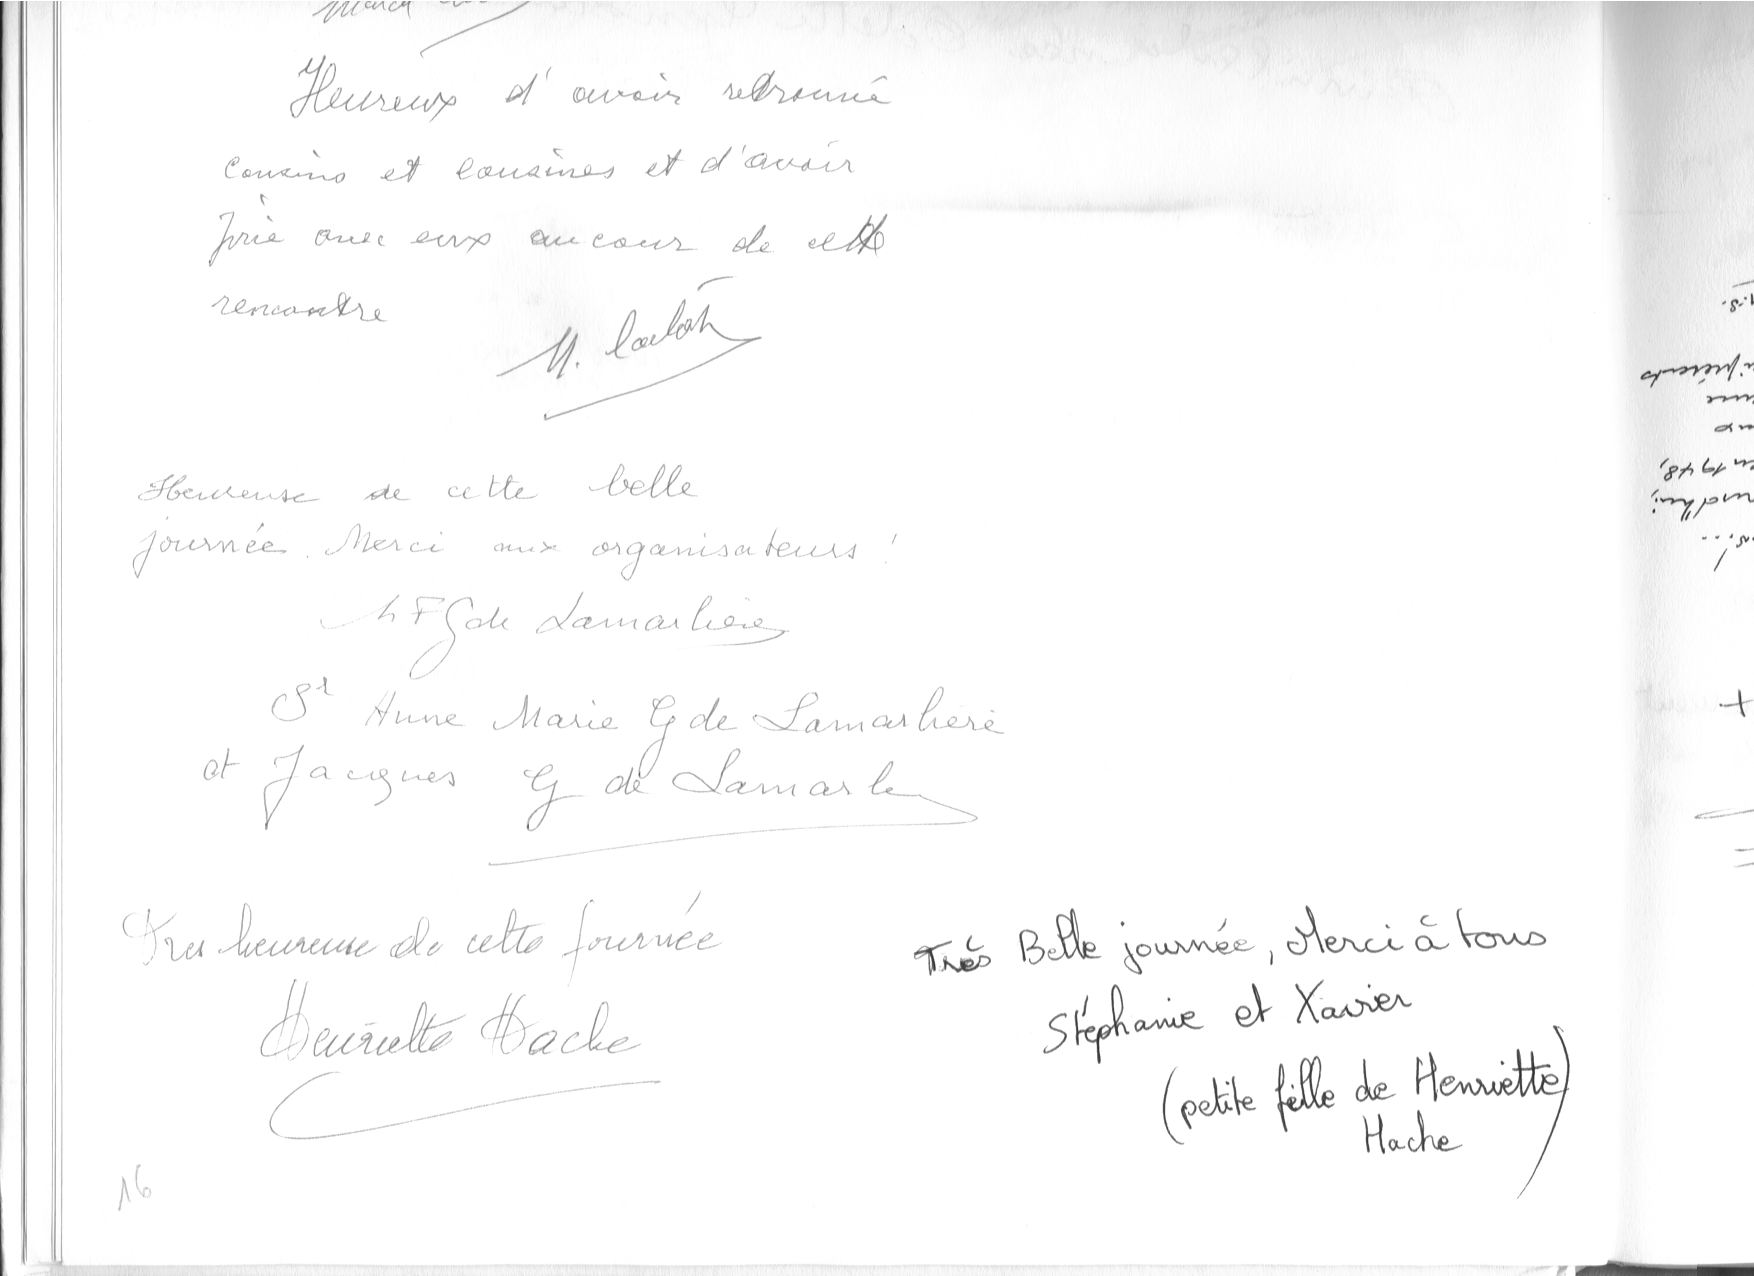 Heureux d'avoir retrouvé
cousins et cousines et d'avoir
prié avec eux au cour de cette
rencontre
M.
Heureuse de cette belle
journée. Merci aux organisateurs !
M F G de Lamarlière
Sr Anne Marie G de Lamarlière
et Jacques G de Lamarle
Tres heureuse de cette journée
Henriette Hache
Très Belle journée, Merci à tous
Stéphanie et Xavier
(petite fille de Henriette
Hache)
16
en 1948,